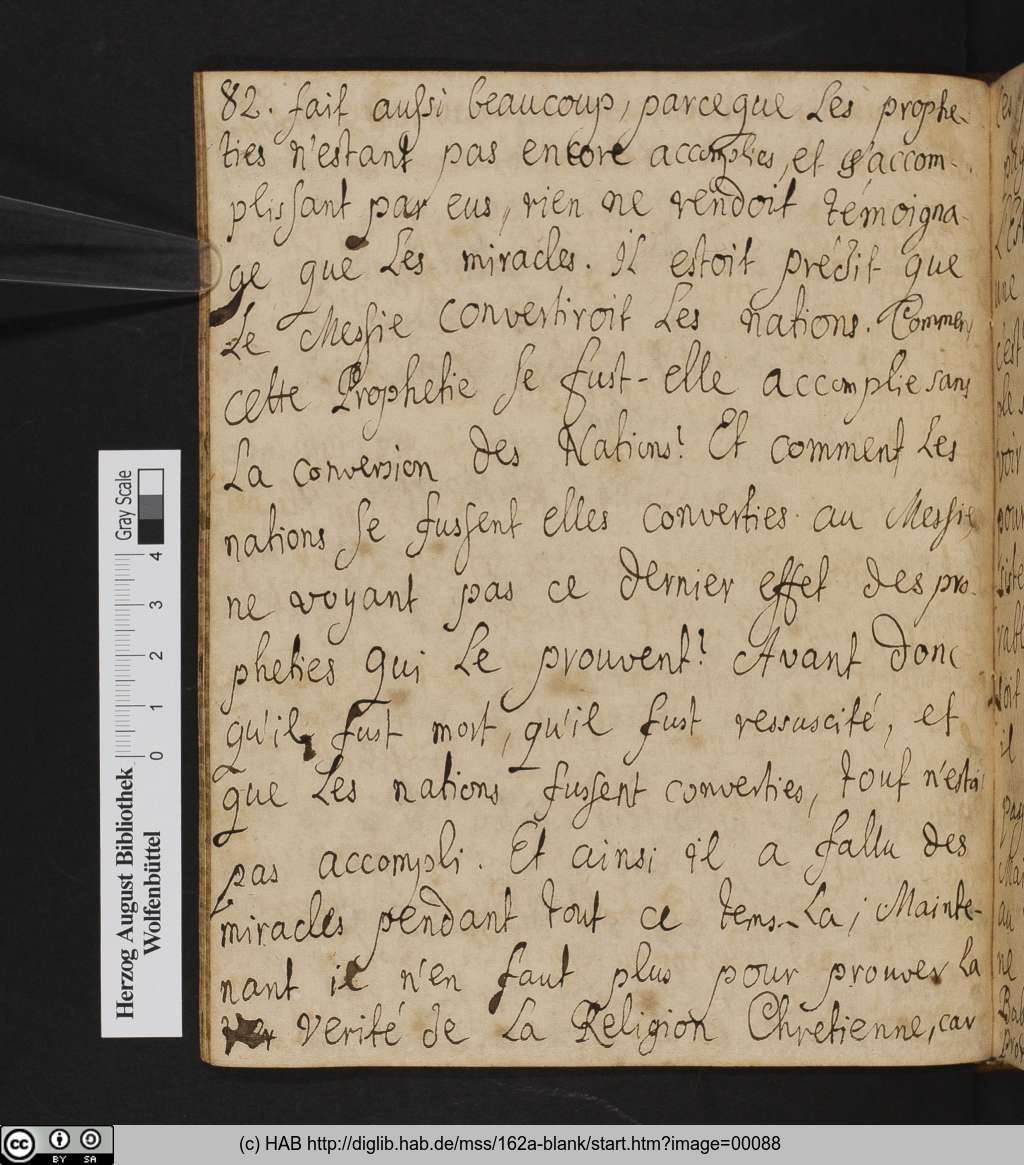 82. fait aussi beaucoup, parceque Les prophe-
ties n'estant pas encore accomplies, et s'accom-
plissant par eus, rien ne rendoit témoigna-
ge que Les miracles. Il estoit prédit que
Le Messie convertiroit Les nations. Comment
cette Prophetie se fust-elle accomplie sans
La conversion des Nations? Et comment Les
nations se fussent elles converties au Messie,
ne voyant pas ce dernier effet des pro-
pheties qui Le prouvent? Avant donc
qu'il fust mort, qu'il fust ressuscité, et
que Les nations fussent converties, tout n'estoit
pas accompli. Et ainsi il a fallu des
miracles pendant tout ce tems-La; Mainte-
nant il n'en faut plus pour prouver La
verité de La Religion Chretienne, car
Gray Scale
0 1 2 3 4
Herzog August Bibliothek
Wolfenbüttel
cc BY SA
(c) HAB http://diglib.hab.de/mss/162a-blank/start.htm?image=00088